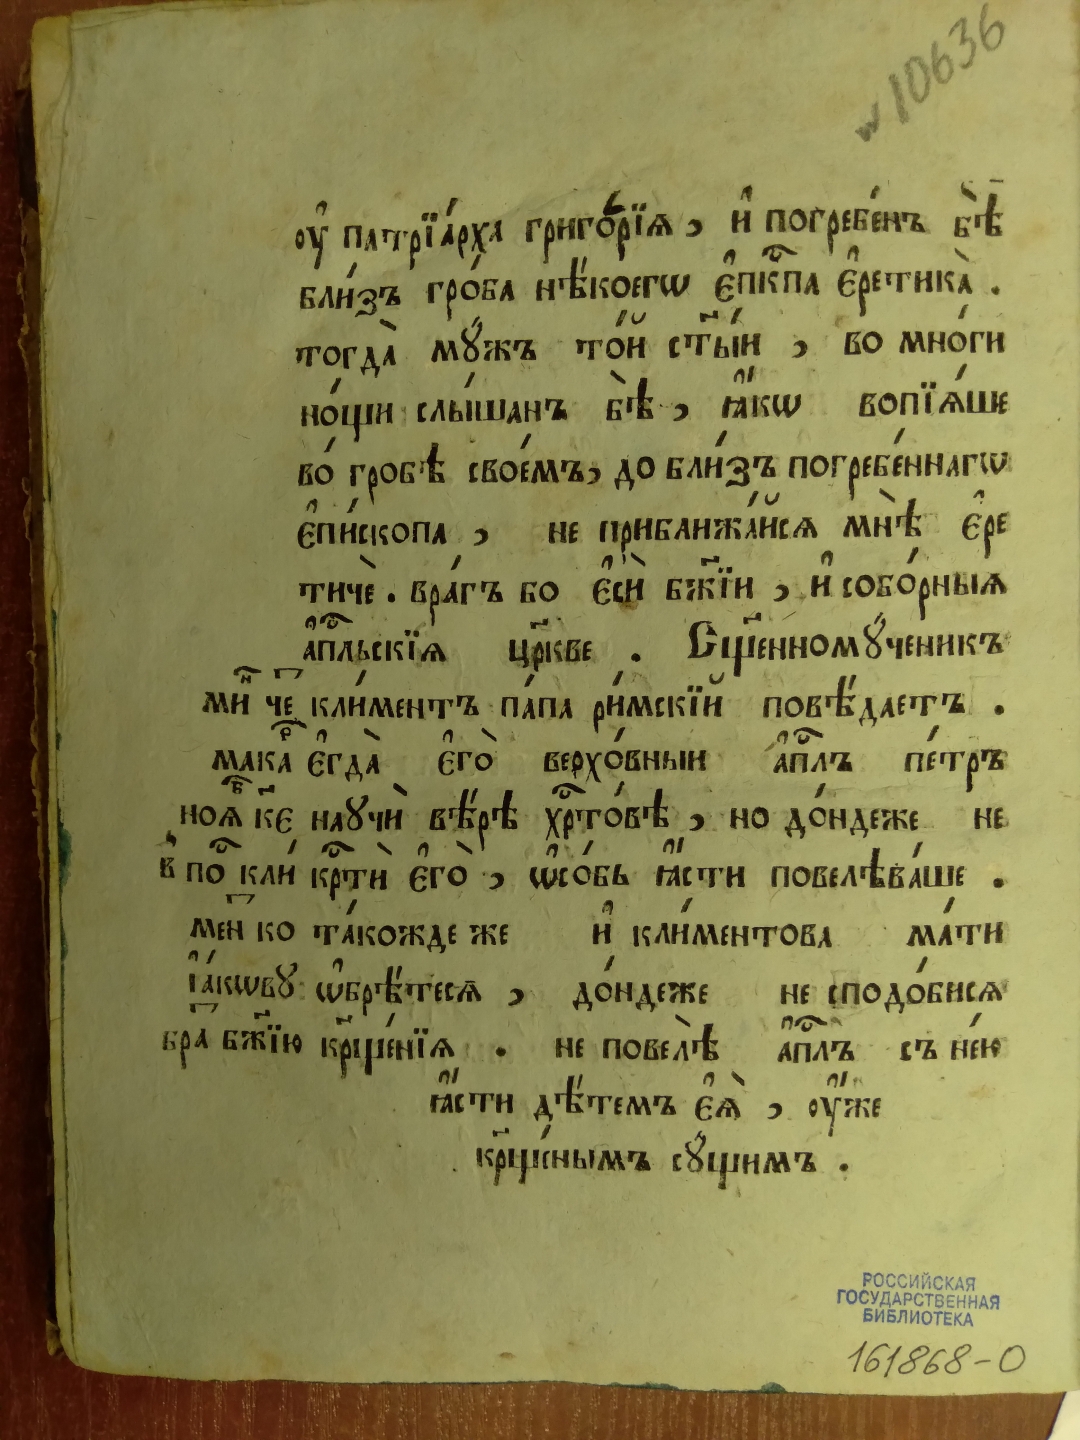 w 10636
ᲂу҆ патрїа́рха григо́рїѧ , и҆ погребе́нъ бѣ̀
бли́зъ гро́ба нѣ́коегѡ є҆пкⷭ҇па є҆ретика̀ .
тогда̀ мꙋ́жъ то́й ст҃ы́й , во мно́ги
но́щи слы́шанъ бѣ̀ , ꙗ҆́кѡ вопїѧ́ше
во́ гробѣ свое́мъ, до бли́зъ погребе́ннагѡ
є҆пи́скопа , не приближа́йсѧ мнѣ̀ є҆ре
тичѐ . вра́гъ бо є҆сѝ бж҃їи , и҆ собо́рныѧ
а҆пⷭ҇льскїѧ цр҃кве . Сщ҃е́нномꙋ́ченикъ
миⷩ҇ че кли́ментъ па́па ри́мскїй повѣ́даетъ .
макаⷬ҇ є҆гда̀ є҆го̀ верхо́вныи а҆пⷭ҇лъ пе́тръ
ноѧⷡ҇ к҃є наꙋчѝ вѣ́рѣ хрⷭ҇то́вѣ , но до́ндеже не
в҃ поⷭ҇ кли́ крⷭ҇тѝ є҆го̀ , ѡ҆со́бь ꙗ҆́сти повелѣва́ше .
мен ко та́кожде же и҆ кли́ментова ма́ти
і҆а́кѡвꙋ ѡ҆брѣ́тесѧ , до́ндеже не сподо́бисѧ
бра бж҃їю крщ҃е́нїѧ . не повелѣ̀ а҆пⷭ҇лъ съ не́ю
ꙗ҆́сти дѣ́темъ є҆ѧ̀ , ᲂу҆́же
крщ҃е́нымъ сꙋ́щимъ .
РОССИЙСКАЯ
ГОСУДАРСТВЕННАЯ
БИБЛИОТЕКА
161868-О